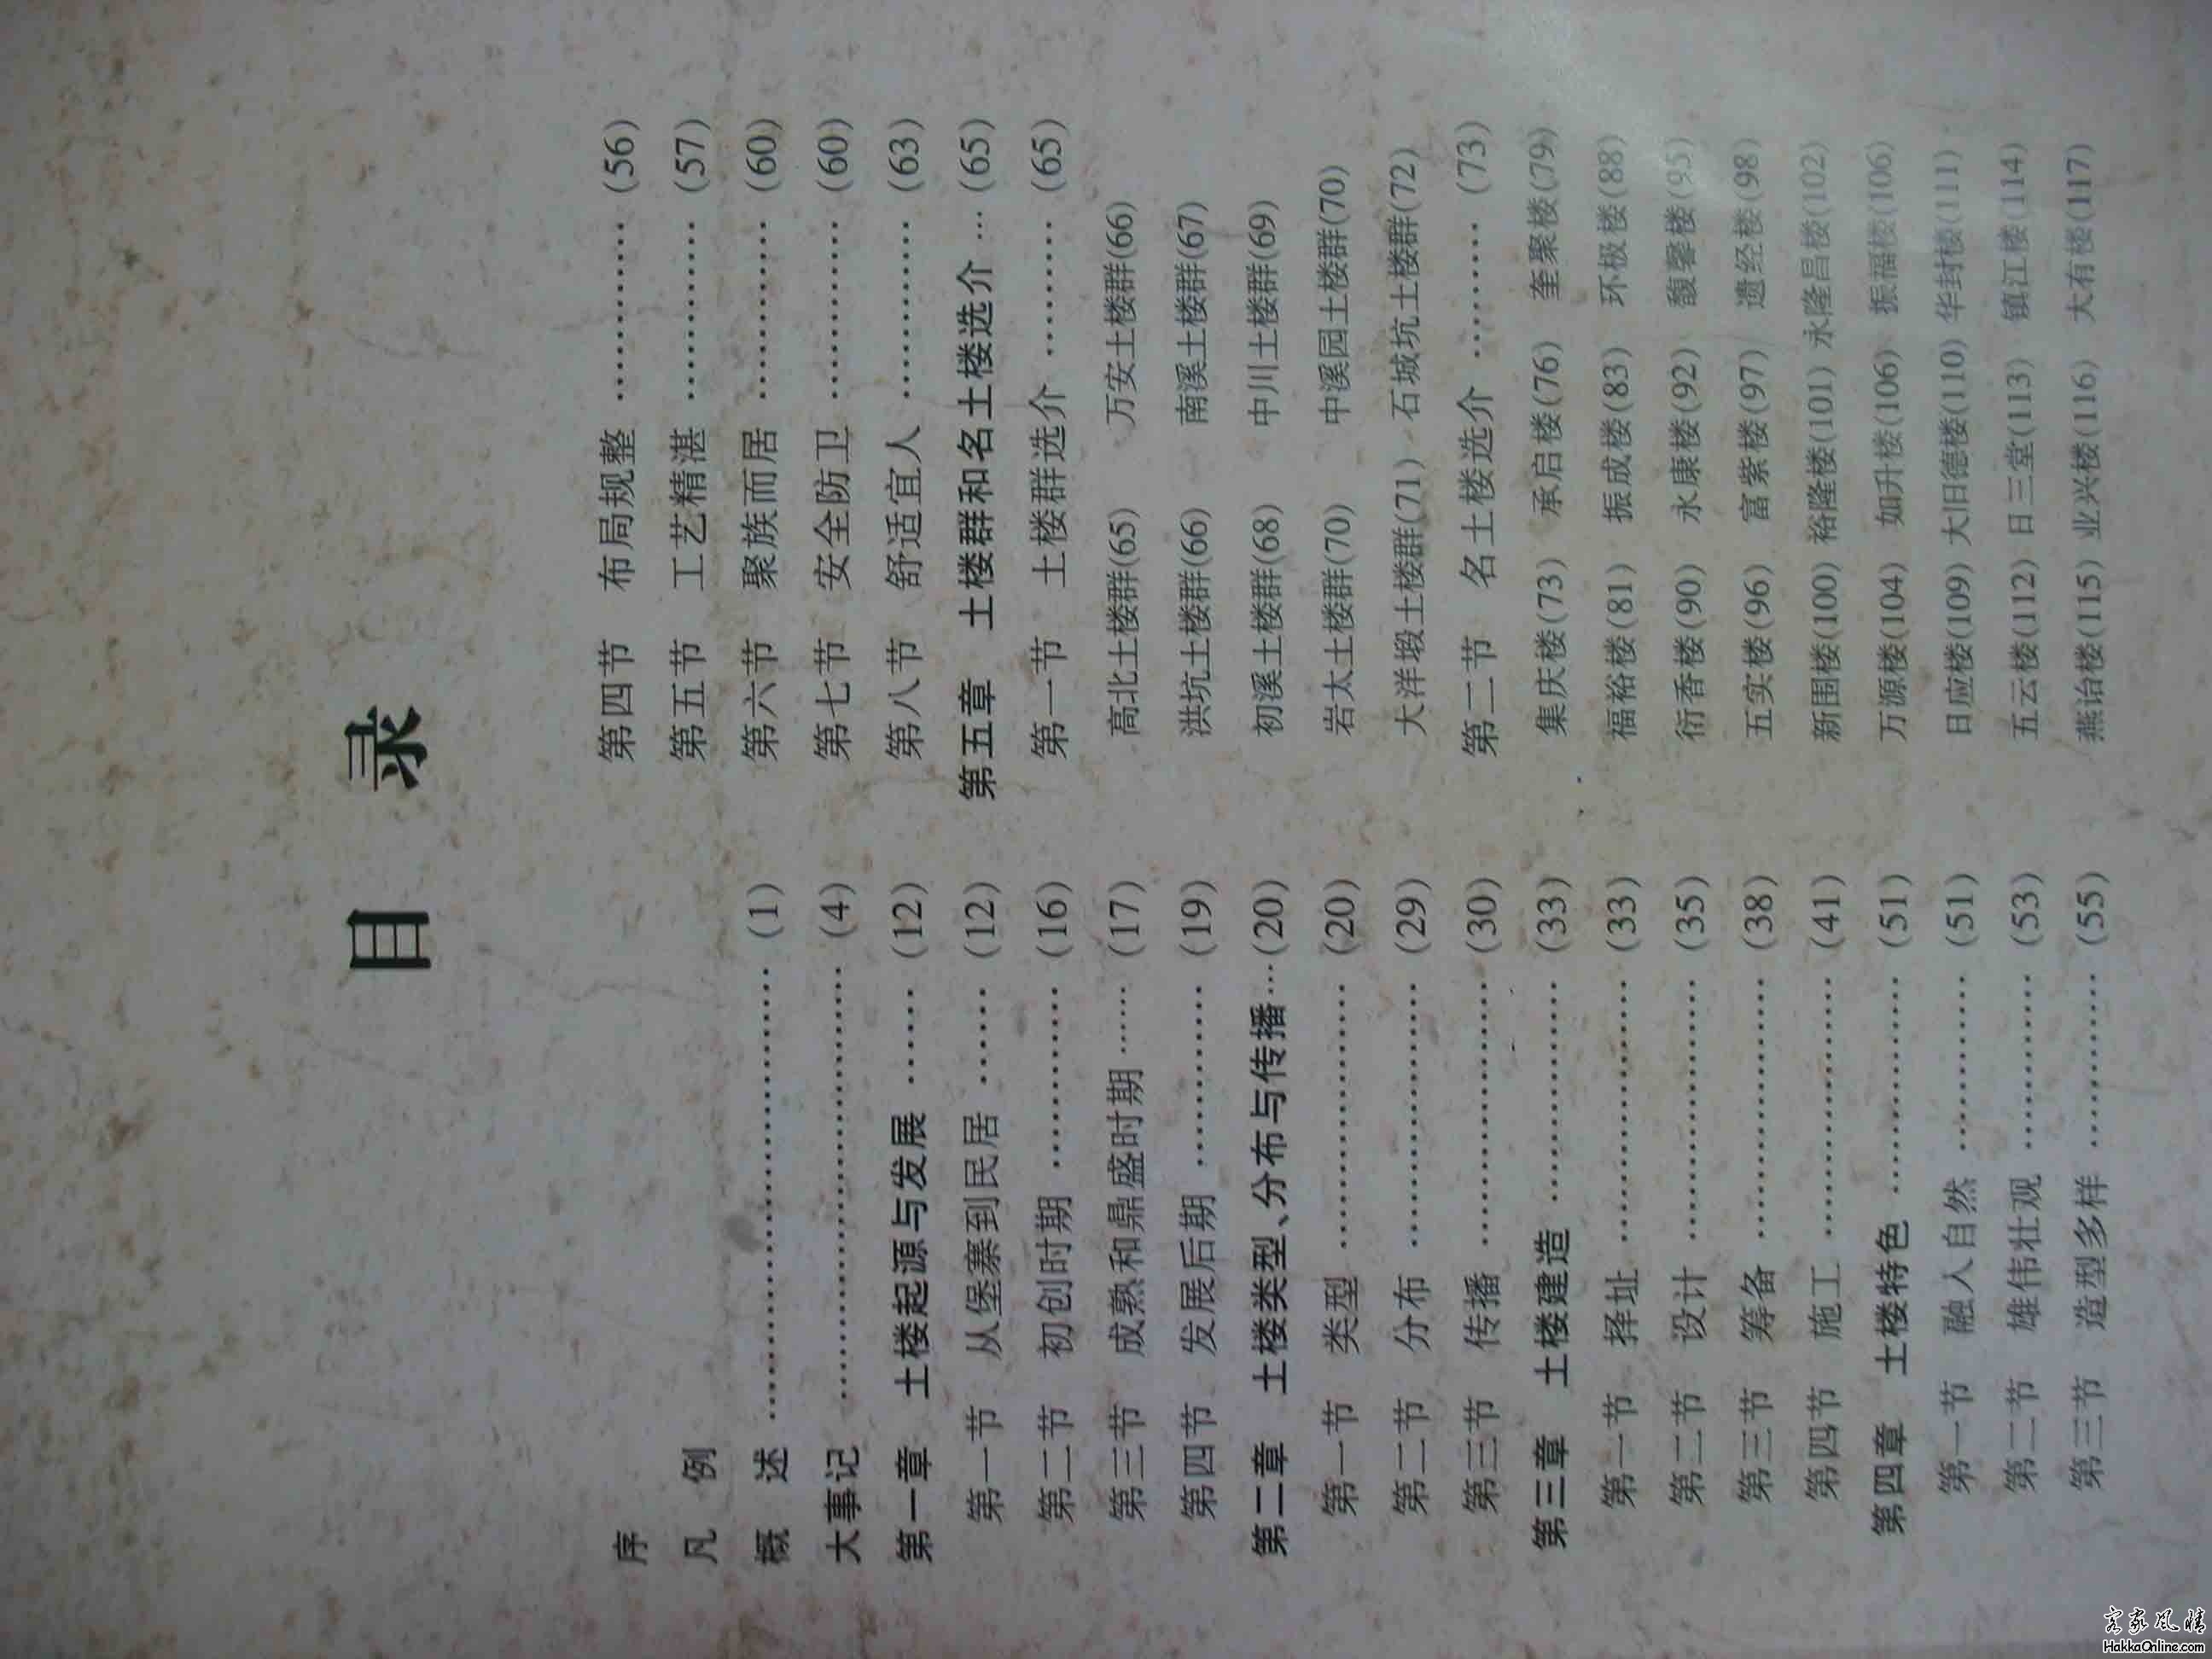 目 录
序
凡 例
概 述 …………………………… (1)
大事记 …………………………… (4)
第一章 土楼起源与发展 …… (12)
第一节 从堡寨到民居 …… (12)
第二节 初创时期 ………… (16)
第三节 成熟和鼎盛时期 …… (17)
第四节 发展后期 ………… (19)
第二章 土楼类型、分布与传播 … (20)
第一节 类型 ……………… (20)
第二节 分布 ……………… (29)
第三节 传播 ……………… (30)
第三章 土楼建造 …………… (33)
第一节 择址 ……………… (33)
第二节 设计 ……………… (35)
第三节 筹备 ……………… (38)
第四节 施工 ……………… (41)
第四章 土楼特色 …………… (51)
第一节 融入自然 ………… (51)
第二节 雄伟壮观 ………… (53)
第三节 造型多样 ………… (55)
第四节 布局规整 ………… (56)
第五节 工艺精湛 ………… (57)
第六节 聚族而居 ………… (60)
第七节 安全防卫 ………… (60)
第八节 舒适宜人 ………… (63)
第五章 土楼群和名土楼选介 … (65)
第一节 土楼群选介 ……… (65)
高北土楼群(65) 万安土楼群(66)
洪坑土楼群(66) 南溪土楼群(67)
初溪土楼群(68) 中川土楼群(69)
岩太土楼群(70) 中溪园土楼群(70)
大洋塅土楼群(71) 石城坑土楼群(72)
第二节 名土楼选介 ……… (73)
集庆楼(73) 承启楼(76) 奎聚楼(79)
福裕楼(81) 振成楼(83) 环极楼(88)
衍香楼(90) 永康楼(92) 馥馨楼(95)
五实楼(96) 富紫楼(97) 遗经楼(98)
新围楼(100) 裕隆楼(101) 永隆昌楼(102)
万源楼(104) 如升楼(106) 振福楼(106)
日应楼(109) 大旧德楼(110) 华封楼(111)
五云楼(112) 日三堂(113) 镇江楼(114)
燕诒楼(115) 业兴楼(116) 大有楼(117)
客家风情
HakkaOnline.com